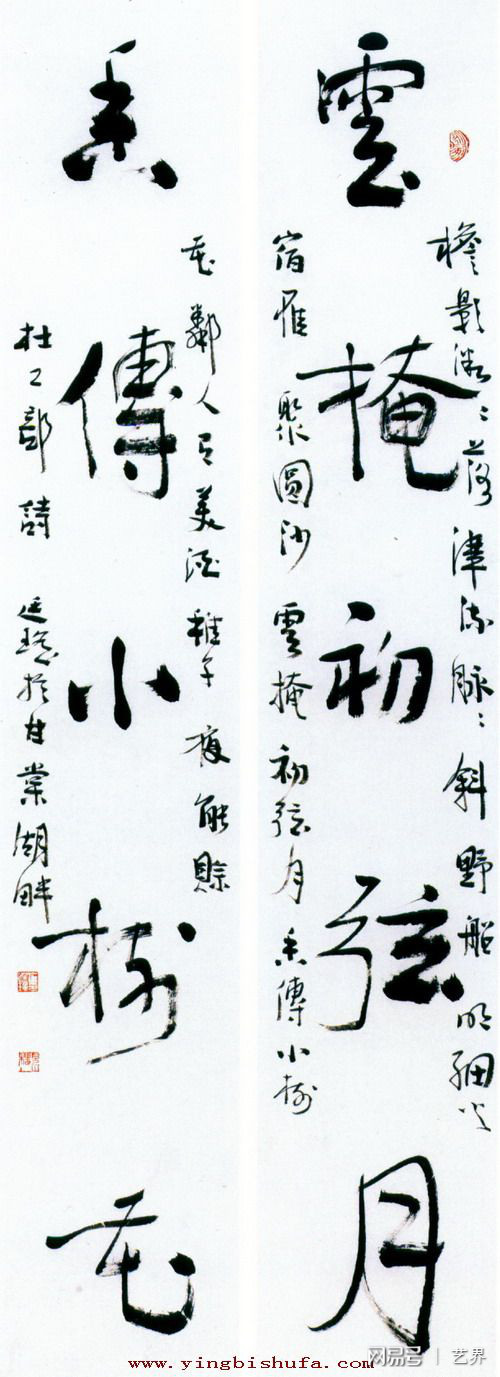 雲掩初弦月
檐影微〻落津流脈〻斜野船明細火
宿雁聚圓沙雲掩初弦月香傳小樹
香傳小樹花
花鄰人有美酒稚子夜能賒
杜工部詩 於甘棠湖畔
www.yingbishufa.com
网易号 | 艺界